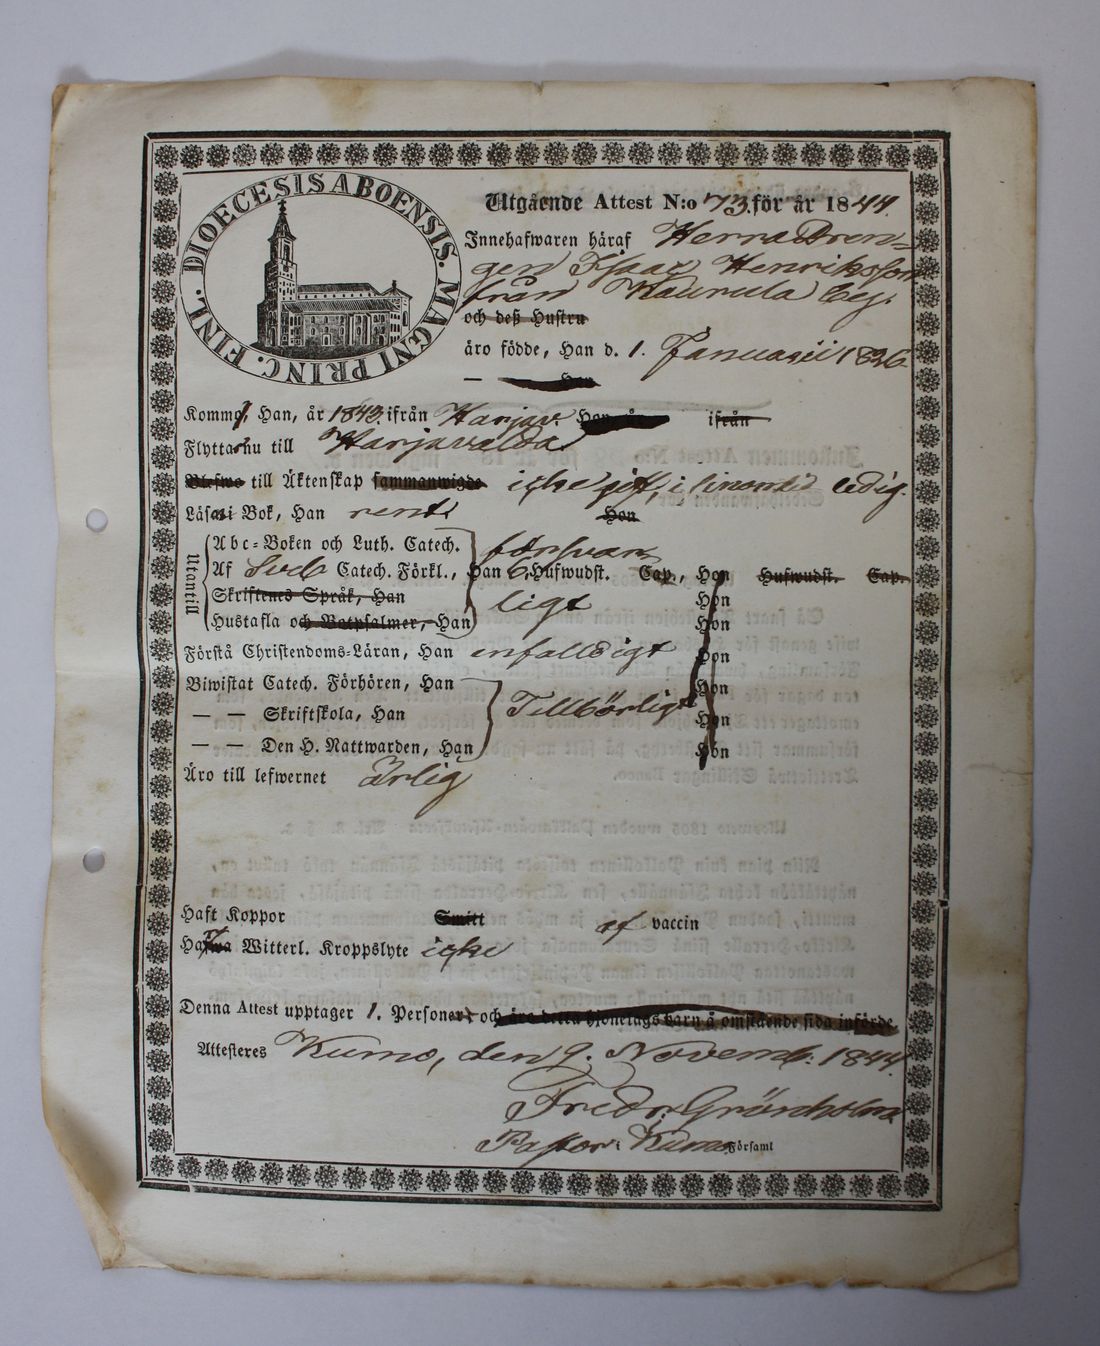 DIOECESIS ABOENSIS. MAGNI PRINC. FINL.
Utgående Attest N:o 73. för år 1844.
Innehafwaren häraf Herra Dren=
gen Isaac Henriksson
från Kaurula By:
och deß Hustru
äro födde, Han d. 1. Januarii 1826
— Hon
Komma, Han, år 1843. ifrån Harjav. Hon, år ifrån
Flytta nu till Harjavalda
Blefwo till Äktenskap sammanwigde icke gift, ledig.
Läsa i Bok, Han rent Hon
Utantill
Abc-Boken och Luth. Catech.
Af Sveb Catech. Förkl., Han 6, Hufwudst. Cap., Hon Hufwudst. Cap.
Skriftenes Språk, Han Hon
Hustafla och Botpsalmer, Han Hon
försvar
ligt
Förstå Christendoms-Läran, Han enfalldigt Hon
Biwistat Catech. Förhören, Han Hon
— — Skriftskola, Han Tillbörligt Hon
— — Den H. Nattwarden, Han Hon
Äro till lefwernet ärlig
Haft Koppor Smitt af vaccin
Hafwa Witterl. Kroppslyte icke
Denna Attest upptager 1. Personer och äro detta hjonelags barn å omstående sida införde
Attesteres Kumo, den 9. Novemb: 1844.
Fredr Grönholm
Pastor i Kumo Församl